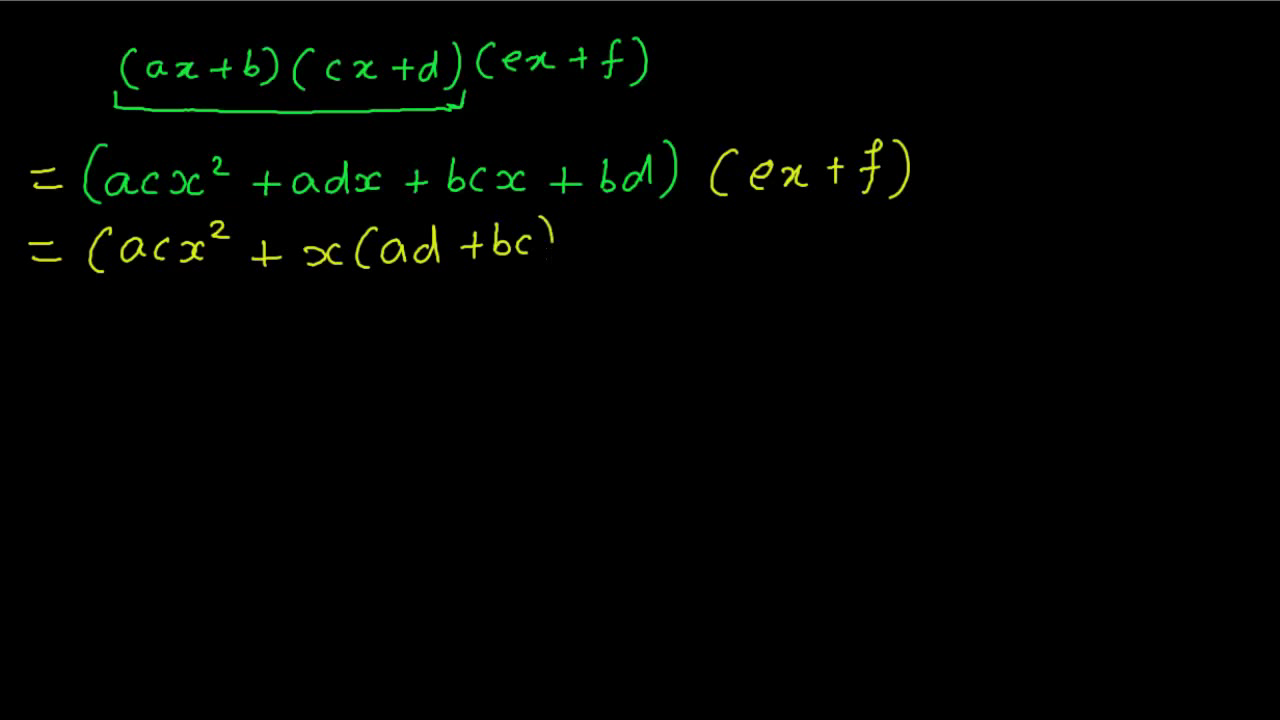 (ax+b)(cx+d)(ex+f)
= (acx² + adx + bcx + bd) (ex+f)
= (acx² + x(ad+bc)